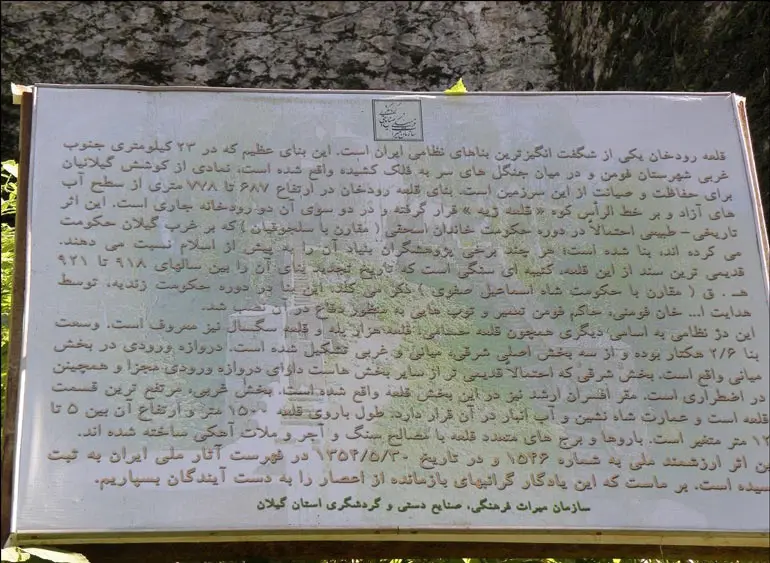 قلعه رودخان یکی از شگفت انگیزترین بناهای نظامی ایران است. این بنای عظیم که در ۲۳ کیلومتری جنوب
غربی شهرستان فومن و در میان جنگل های سر به فلک کشیده واقع شده است، نمادی از کوشش گیلانیان
برای حفاظت و صیانت از این سرزمین است. بنای قلعه رودخان در ارتفاع ۶۸۷ تا ۷۷۸ متری از سطح آب
های آزاد و بر خط الرأس کوه « قلعه ژیه » قرار گرفته و در دو سوی آن دو رودخانه جاری است. این اثر
تاریخی - طبیعی احتمالاً در دوره حکومت خاندان اسحقی ( مقارن با سلجوقیان ) که بر غرب گیلان حکومت
می کرده اند، بنا شده است؛ هر چند برخی پژوهشگران بنیاد آن را به پیش از اسلام نسبت می دهند.
قدیمی ترین سند از این قلعه، کتیبه ای سنگی است که تاریخ تجدید بنای آن را بین سالهای ۹۱۸ تا ۹۲۱
هـ . ق ( مقارن با حکومت شاه اسماعیل صفوی ) ذکر می کند. این بنا در دوره حکومت زندیه، توسط
هدایت ا... خان فومنی، حاکم فومن تعمیر و توپ هایی به منظور دفاع در آن شد.
این دژ نظامی به اسامی دیگری همچون قلعه قلعه هزار پله و قلعه سگسال نیز معروف است. وسعت
بنا ۲/۶ هکتار بوده و از سه بخش اصلی شرقی، میانی و غربی تشکیل شده است. دروازه ورودی در بخش
میانی واقع است. بخش شرقی که احتمالاً قدیمی تر از سایر بخش هاست دارای دروازه ورودی مجزا و همچنین
در اضطراری است. مقر افسران ارشد نیز در این بخش قلعه واقع شده است. بخش غربی، مرتفع ترین قسمت
قلعه است و عمارت شاه نشین و آب انبار در آن قرار دارد. طول باروی قلعه ۱۵۰۰ متر و ارتفاع آن بین ۵ تا
۱۲ متر متغیر است. باروها و برج های متعدد قلعه با مصالح سنگ و آجر و ملات آهکی ساخته شده اند.
این اثر ارزشمند ملی به شماره ۱۵۴۶ و در تاریخ ۱۳۵۴/۵/۳۰ در فهرست آثار ملی ایران به ثبت
رسیده است. بر ماست که این یادگار گرانبهای بازمانده از اعصار را به دست آیندگان بسپاریم.
سازمان میراث فرهنگی، صنایع دستی و گردشگری استان گیلان